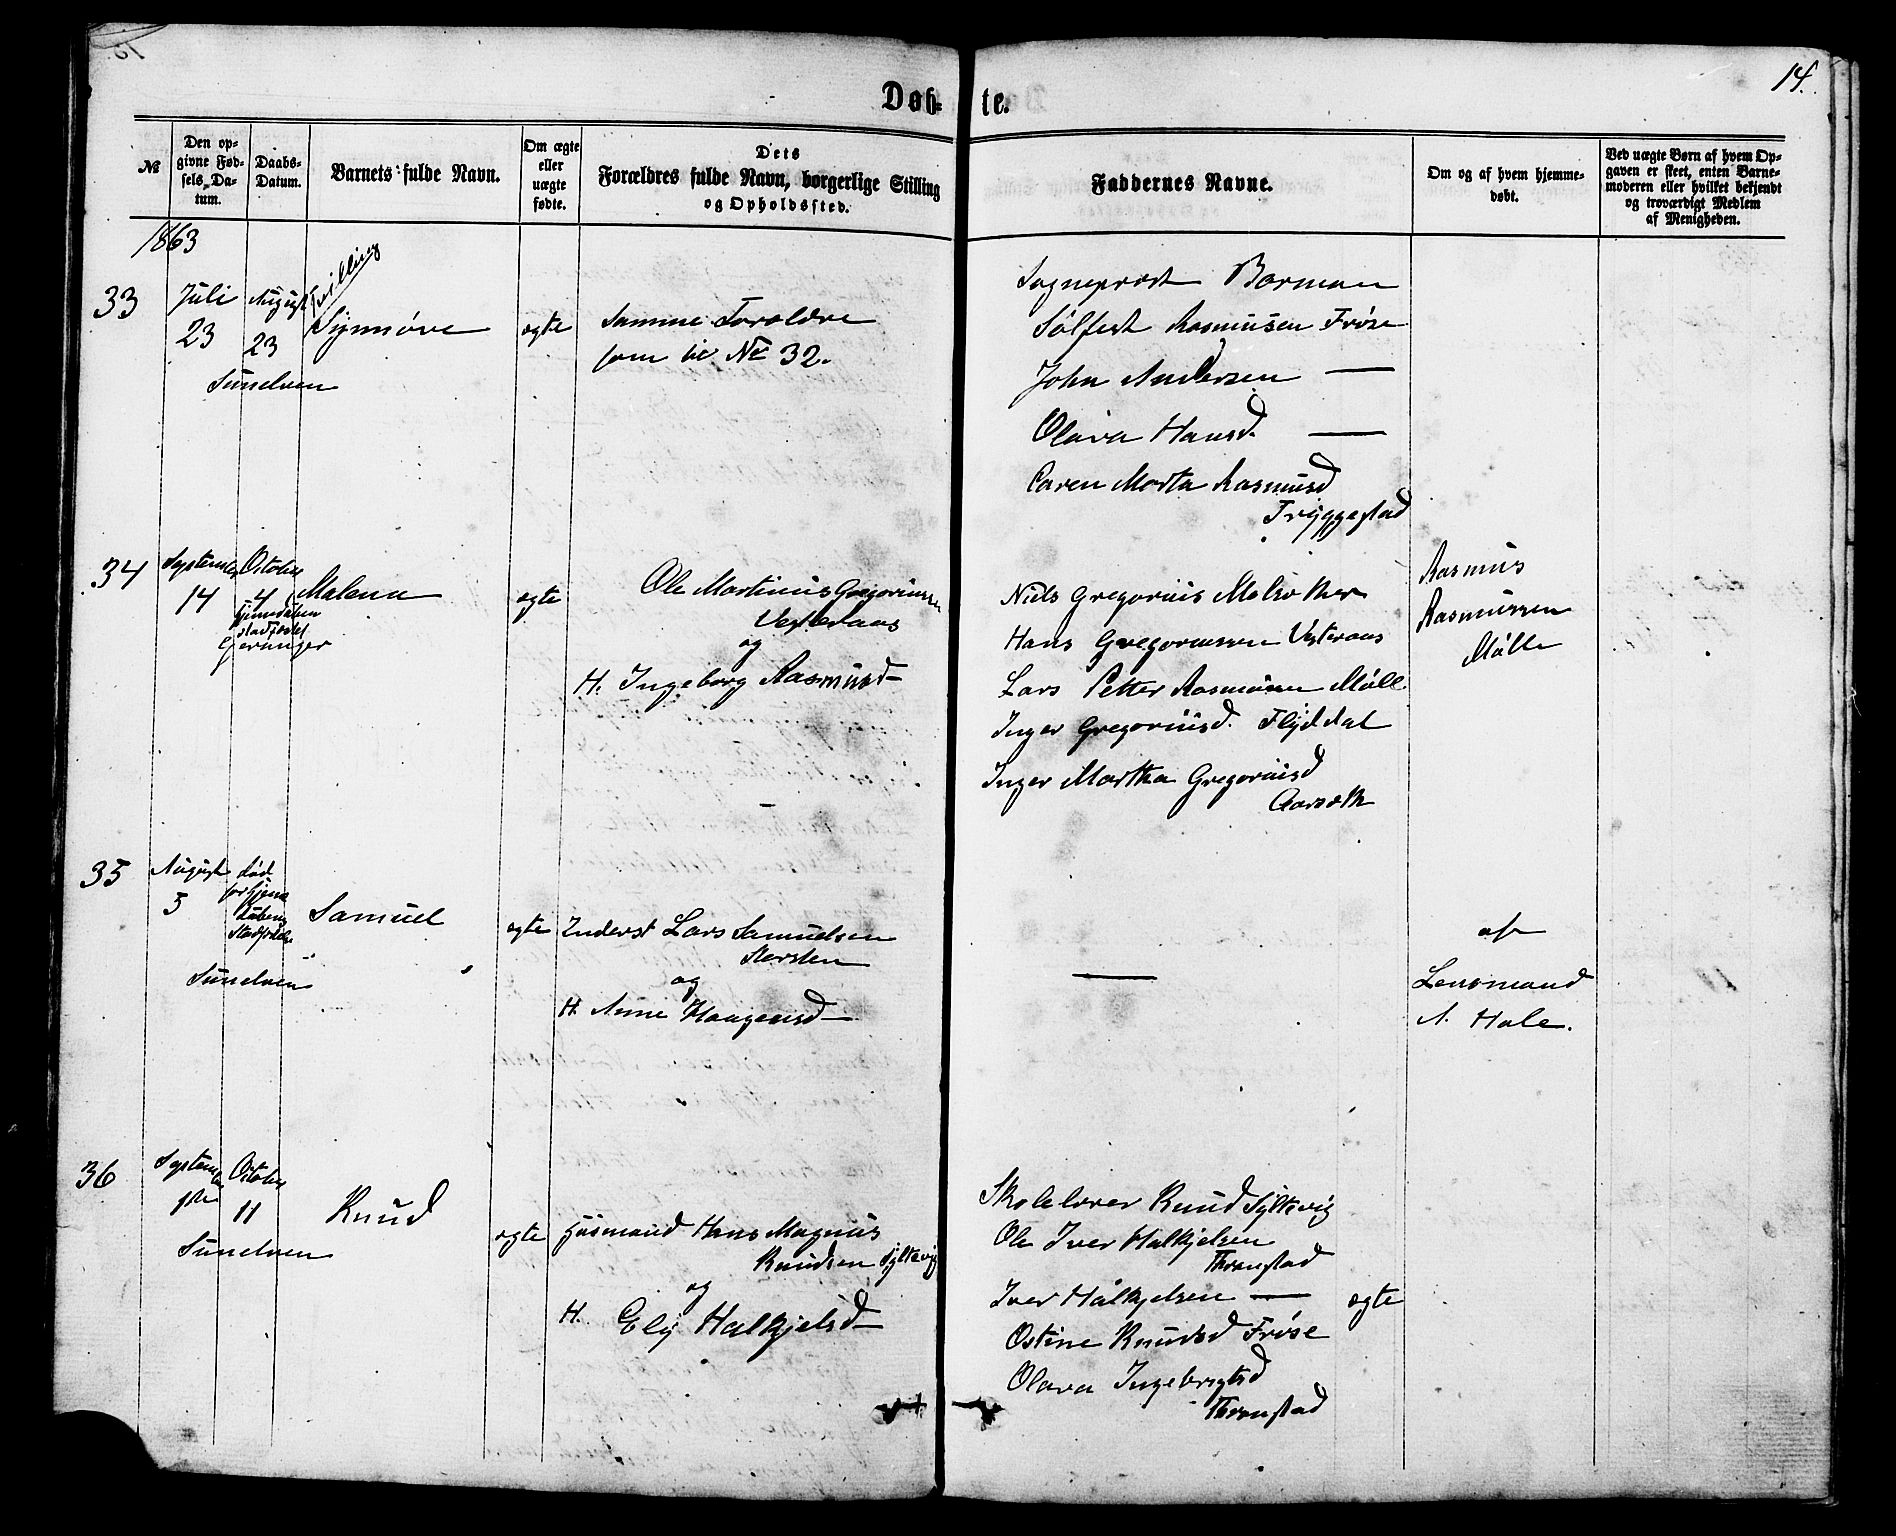 14.
Døb- te.
№
Den op-
givne Fød-
sels-Da-
tum.
Daabs-
Datum.
Barnets fulde Navn.
Om ægte
eller
uægte
fødte.
Dets
Forældres fulde Navn, borgerlige Stilling
og Opholdssted.
Faddernes Navne.
Om og af hvem hjemme-
døbt.
Ved uægte Børn af hvem Op-
gaven er skeet, enten Barne-
moderen eller hvilket bekjendt
og troværdigt Medlem
af Menigheden.
1863
33
Juli
23
August
23
Sunelven
Tvilling
Synnøve
egte
Samme Foreldre
som ve № 32.
Sogneprest Borman
Sølfest Rasmusen Frøse
John Andersen —
Olava Hansd. —
Caren Marta Rasmusd
Tryggestad
34
September
14
October
4
hjemdøben
stadfestet
Geranger
Malena
egte
Ole Martinus Gregoriussen
Vesteraas
og
H. Ingeborg Rasmusd—
Niels Gregorius
Hans Gregoriussen Vesteraas
Lars Petter Rasmusen Møll
Inger Gregoriusd. Flydal
Inger Martha Gregoriusd
Rasmus
Rasmussen
Mølle
35
August
5
død
for hjem
daabens
Stadfestelse
Sunelven
Samuel
egte
Inderst Lars Samuelsen
og
H. Anne Haagensd—
—
af
Lensmand
A. Hole.
36
September
1ste
October
11
Sunelven
Knud
egte
Husmand Hans Magnus
Knudsen Syltevig
og
H. Ely Halkjelsd—
Skolelærer Knud Syltevig
Ole Iver Halkjelsen
Thronstad
Iver Halkjelsen — egte
Ostine Knudsd Frøse
Olava Ingebrigtsd
Thronstad